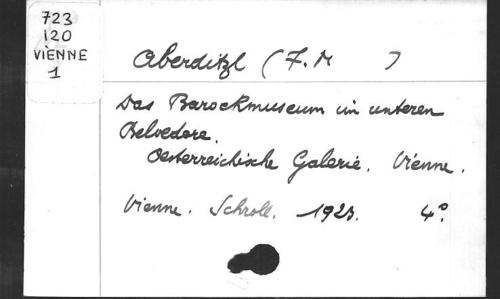 723
120
VIENNE
1
Aberditzl (F. M )
Das Barockmuseum im unteren
Belvedere.
Oesterreichische Galerie. Vienne.
Vienne. Schroll. 1923. 4°.